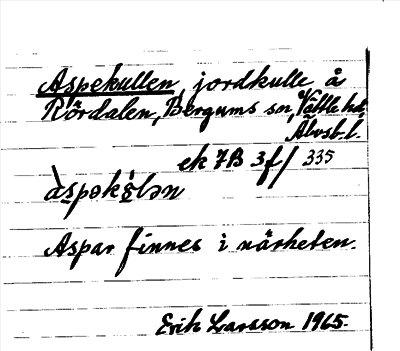 Aspekullen, jordkulle å
Rördalen, Bergums sn, Vättle hd,
Älvsb. l.
ek 7B 3f/ 335
àspək
Aspar finnes i närheten.
Erik Larsson 1965.